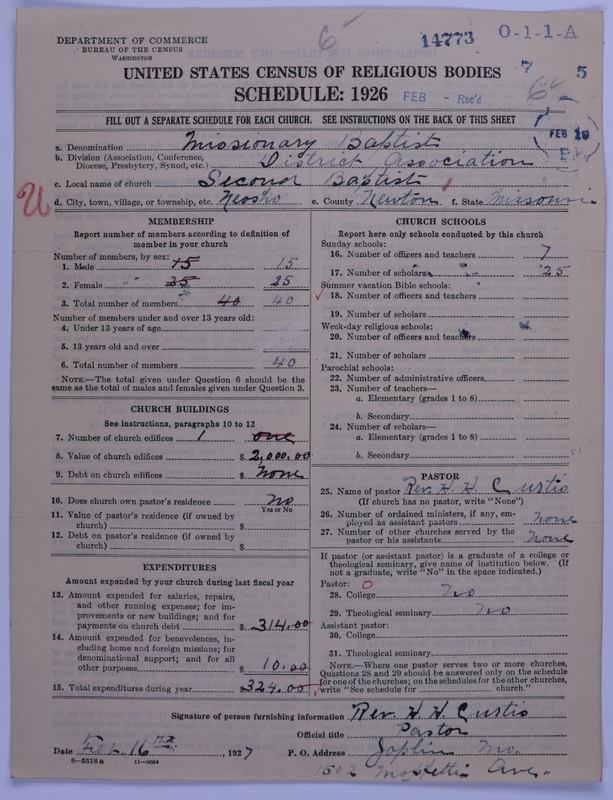 DEPARTMENT OF COMMERCE
BUREAU OF THE CENSUS
WASHINGTON
6
14773
O-1-1-A
UNITED STATES CENSUS OF RELIGIOUS BODIES
7 5
SCHEDULE: 1926
FEB - Rec'd
FILL OUT A SEPARATE SCHEDULE FOR EACH CHURCH. SEE INSTRUCTIONS ON THE BACK OF THIS SHEET
FEB 19
a. Denomination Missionary Baptist
b. Division (Association, Conference, Diocese, Presbytery, Synod, etc.) District Association
c. Local name of church Second Baptist
U
d. City, town, village, or township, etc. Neosho e. County Newton f. State Missouri
MEMBERSHIP
Report number of members according to definition of member in your church
Number of members, by sex:
1. Male 15 15
2. Female 25 25
3. Total number of members 40 40
Number of members under and over 13 years old:
4. Under 13 years of age
5. 13 years old and over
6. Total number of members 40
NOTE.—The total given under Question 6 should be the same as the total of males and females given under Question 3.
CHURCH BUILDINGS
See instructions, paragraphs 10 to 12
7. Number of church edifices 1 one
8. Value of church edifices $ 2,000.00
9. Debt on church edifices $ None
10. Does church own pastor's residence No
Yes or No
11. Value of pastor's residence (if owned by church) $
12. Debt on pastor's residence (if owned by church) $
EXPENDITURES
Amount expended by your church during last fiscal year
13. Amount expended for salaries, repairs, and other running expenses; for improvements or new buildings; and for payments on church debt $ 314.00
14. Amount expended for benevolences, including home and foreign missions; for denominational support; and for all other purposes $ 10.00
15. Total expenditures during year $ 324.00
CHURCH SCHOOLS
Report here only schools conducted by this church
Sunday schools:
16. Number of officers and teachers 7
17. Number of scholars 25
Summer vacation Bible schools:
18. Number of officers and teachers
19. Number of scholars
Week-day religious schools:
20. Number of officers and teachers
21. Number of scholars
Parochial schools:
22. Number of administrative officers
23. Number of teachers—
a. Elementary (grades 1 to 8)
b. Secondary
24. Number of scholars—
a. Elementary (grades 1 to 8)
b. Secondary
PASTOR
25. Name of pastor Rev. H. H. Curtis
(If church has no pastor, write "None")
26. Number of ordained ministers, if any, employed as assistant pastors none
27. Number of other churches served by the pastor or his assistants none
If pastor (or assistant pastor) is a graduate of a college or theological seminary, give name of institution below. (If not a graduate, write "No" in the space indicated.)
Pastor: O
28. College no
29. Theological seminary no
Assistant pastor:
30. College
31. Theological seminary
NOTE.—Where one pastor serves two or more churches, Questions 28 and 29 should be answered only on the schedule for one of the churches; on the schedules for the other churches, write "See schedule for church."
Signature of person furnishing information Rev. H. H. Curtis
Official title Pastor
Date Feb. 16th, 1927 P. O. Address Joplin Mo.
8-5518a 11-9084
Ave.